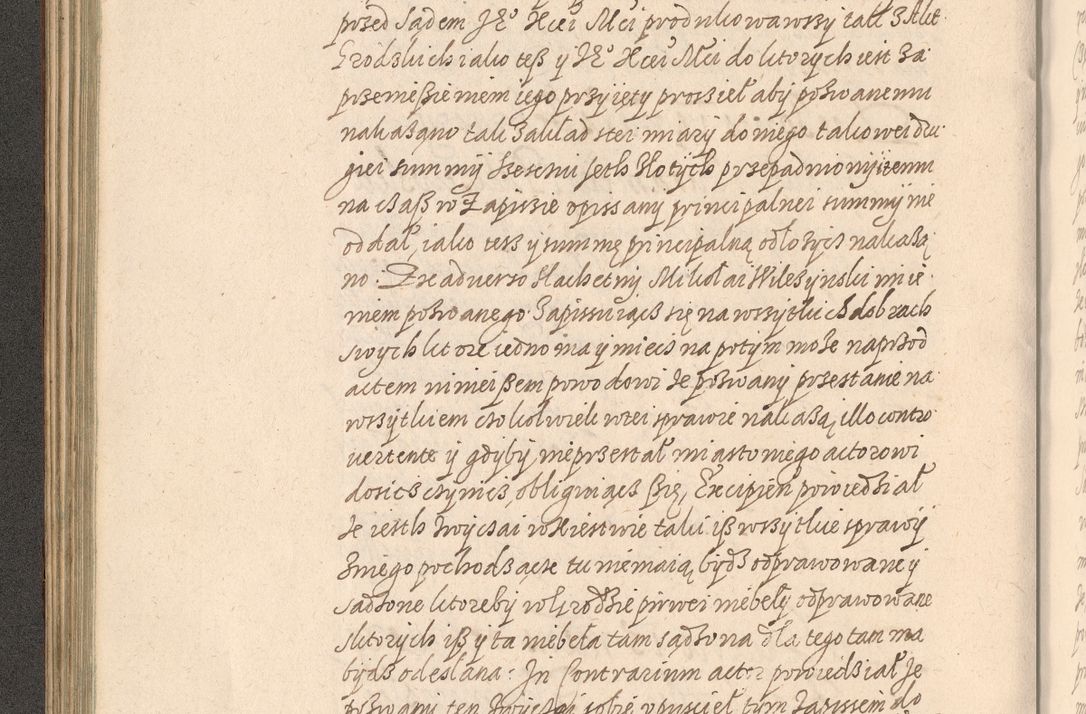 przed sądem Jego Xcei Mci produkowawszy tak z Akt
Grodskich iako tesz y Jego Xcei Mci do ktorych iest za
przemieszieniem iego przyięty prosieł aby poswanemu
nakazano tak zakład ster miary do niego takowei dru
giei summy szesciu seth złotych przepadnionyiemu
na czasz w Zapissie opissany principalnei summy nie
oddał, iako tesz y summę principalną odłozyć nakazą
no. Ex adverso Slachetny Mikołai Wilczynski imie
niem poswanego zapissuiącz się na wszytkich dobrach
swych ktore iedno ma y miecz na potym może naprzod
actem ninieiszem powodowi że poswany przestanie na
wszytkiem czokolwiek w tei sprawie nakazą, illo contro
vertente y gdyby nieprzestał miasto niego actorowi
dosicz czynicz obliguiącz szię, Excipien powiedział
że iesth zwyczai w Xiestwie taki isz wszytkie sprawy
z niego pochodzącze tu nie maią bydz odprawowane y
sądzone ktoreby w grodzie pirwei niebeły odprawowane
s ktorych isz y ta niebeła tam sądzona dla tego tam ma
bydz odesłana: In Contrarium actor powiedział że
poswany ten zwyczai sobie upuscieł tym zapissem do